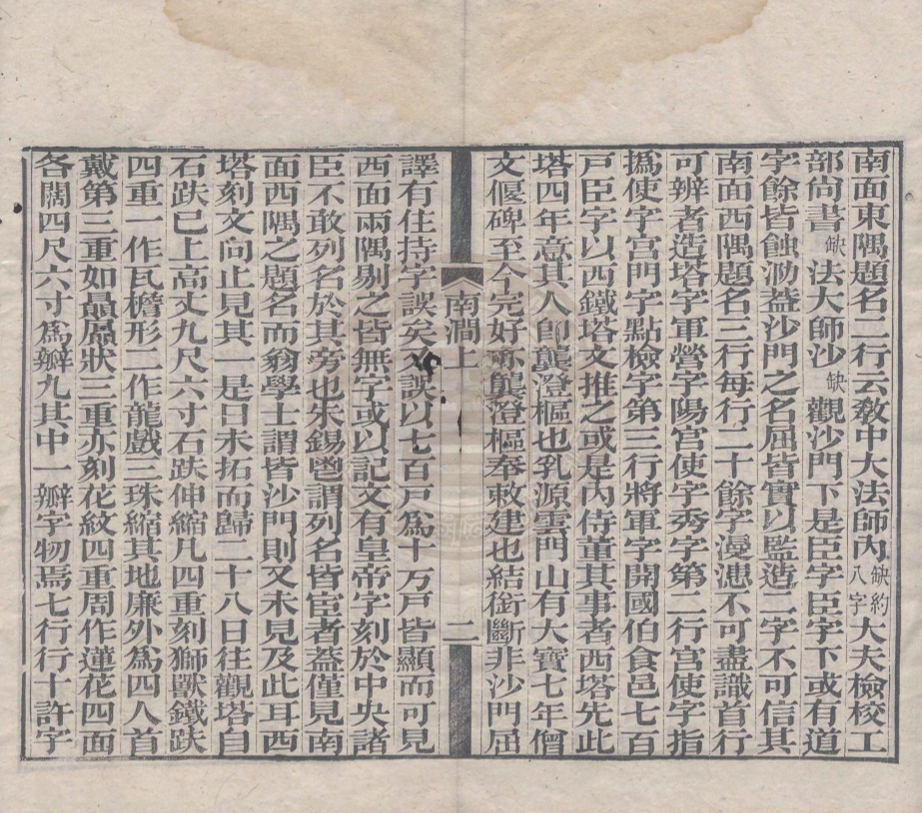 南面東隅題名二行云敎中大法師內缺約八字大夫檢校工
部尚書缺法大師沙缺觀沙門下是臣字臣字下或有道
字餘皆蝕泐葢沙門之名屈皆實以監造二字不可信其
南面西隅題名三行每行二十餘字漫漶不可盡識首行
可辨者造塔字軍營字陽宮使字秀字第二行宮使字指
撝使字宮門字點檢字第三行將軍字開國伯食邑七百
戸臣字以西鐵塔文推之或是內侍董其事者西塔先此
塔四年意其人卽龔澄樞也乳源雲門山有大寶七年僧
文偃碑至今完好亦龔澄樞奉敕建也結銜斷非沙門屈
南澗上
二
譯有住持字誤矣又誤以七百戸爲十万戸皆顯而可見
西面兩隅剔之皆無字或以記文有皇帝字刻於中央諸
臣不敢列名於其旁也朱錫鬯謂列名皆宦者葢僅見南
面西隅之題名而翁學士謂皆沙門則又未見及此耳西
塔刻文向止見其一是日未拓而歸二十八日往觀塔自
石趺已上高丈九尺六寸石趺伸縮凡四重刻獅獸鐵趺
四重一作瓦檐形二作龍戲三珠縮其地廉外爲四人首
戴第三重如贔屭狀三重亦刻花紋四重周作蓮花四面
各闊四尺六寸爲瓣九其中一瓣字物焉七行行十許字